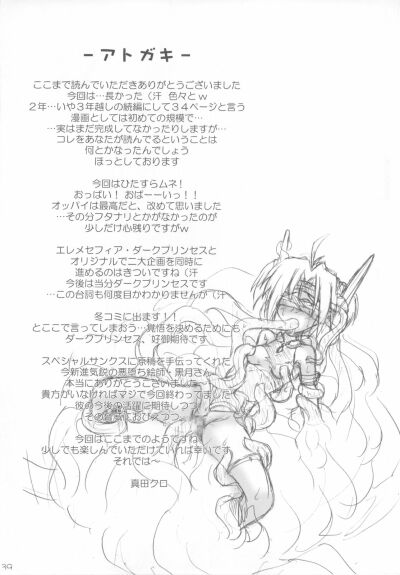 －アトガキ－
ここまで読んでいただきありがとうございました
今回は…長かった（汗 色々とｗ
２年…いや３年越しの続編にして３４ページと言う
漫画としては初めての規模で…
…実はまだ完成してなかったりしますが…
コレをあなたが読んでるということは
何とかなったんでしょう
ほっとしております
今回はひたすらムネ！
おっぱい！ おぱーーいっ！！
オッパイは最高だと、改めて思いました
…その分フタナリとかがなかったのが
少しだけ心残りですがｗ
エレメセフィア・ダークプリンセスと
オリジナルで二大企画を同時に
進めるのはきついですね（汗
今後は当分ダークプリンセスです
…この台詞も何度目かわかりませんが（汗
冬コミに出ます！！
とここで言ってしまおう…覚悟を決めるためにも
ダークプリンセス、好御期待です
スペシャルサンクスに原稿を手伝ってくれた
今新進気鋭の悪堕ち絵師・黒月さん
本当にありがとうございました
貴方がいなければマジで今回終わってました
彼の今後の活躍に期待しつつ
その背中におびえつつ。
今回はここまでのようですね
少しでも楽しんでいただけていれば幸いです
それでは〜
真田クロ
39